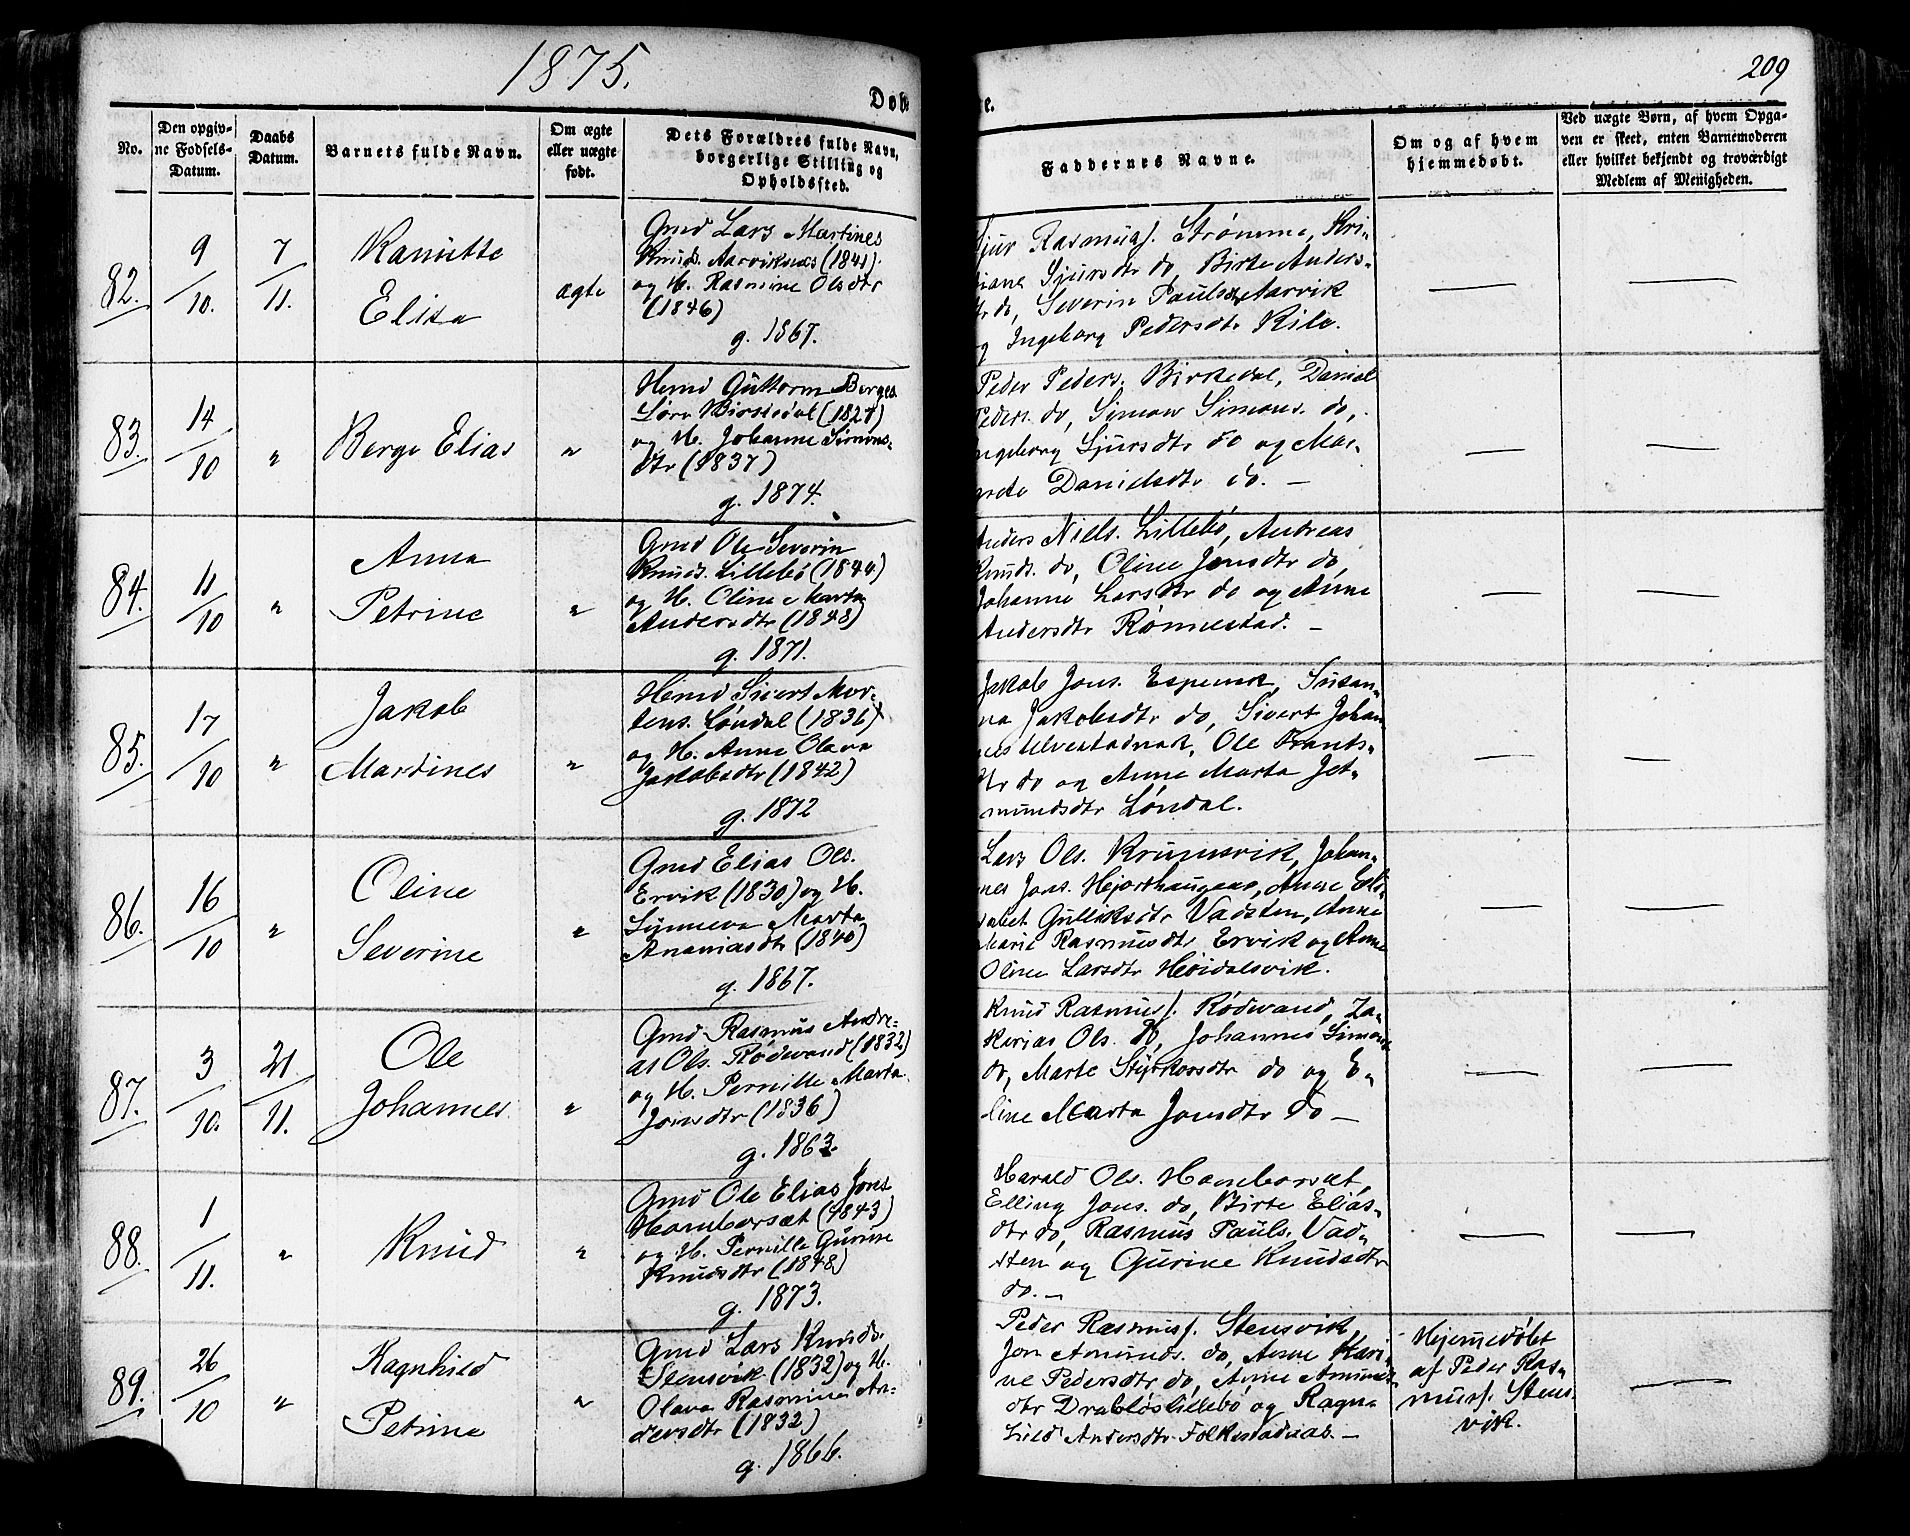 1875.
209
Døb
e.
No.
Den opgiv-
ne Fødsels-
Datum.
Daabs
Datum.
Barnets fulde Navn.
Om ægte
eller uægte
født.
Dets Forældres fulde Navn,
borgerlige Stilling og
Opholdssted.
Faddernes Navne.
Om og af hvem
hjemmedøbt.
Ved uægte Børn, af hvem Opga-
ven er skeet, enten Barnemoderen
eller hvilket bekjendt og troværdigt
Medlem af Menigheden.
82.
9/10.
7/11.
Kanutte
Elisa
ægte
Gmd Lars Martines
Knuds. Aarviksnæs (1841)
og H. Rasmine Olsdtr
(1846)
g. 1867.
Sjur Rasmuss. Strømme, Kri-
tiane Sjursdtr do, Birte Anders-
dtr do, Severin Pauls Aarvik
og Ingeborg Pedersdtr Kile.
— —
83.
14/10
"
Berge Elias
"
Hmd Guttorm Berges.
(1827)
og H. Johanne Simons-
dtr (1837)
g. 1874.
Peder Peders. Birkedal, Daniel
Peders. do, Simon Simons. do,
Ingeborg Sjursdtr do og Mar-
grete Danielsdtr do. —
— —
84.
11/10
"
Anna
Petrine
"
Gmd Ole Severin
Knuds. Lillebø (1844)
og H. Oline Marta
Andersdtr (1848)
g. 1871.
Anders Niels. Lillebø, Andreas
Knuds. do, Oline Jonsdtr do,
Johanne Larsdtr do og Anne
Andersdtr Rønnestad. —
— —
85.
17/10
"
Jakob
Martines
"
Hmd Sivert Mor-
tens. Løndal (1836)
og H. Anne Olava
Jakobsdtr (1842)
g. 1872
Jakob Jons. Espenak, Susan-
na Jakobsdtr do, Sivert Johan
nes Ulvestadnak, Ole Frants-
dtr do og Anne Marta Jet-
mundsdtr Løndal.
— —
86.
16/10
"
Oline
Severine
"
Gmd Elias Ols.
Ervik (1830) og H.
Synneva Marta
Ananiasdtr (1840)
g. 1867.
Lars Ols. Krumsvik, Johan-
nes Jons. Hjorthaugaas, Anne Eli-
sabet Gulliksdtr Vadsten, Anne
Marie Rasmusdtr Ervik og Anne
Oline Larsdtr Høidalsvik.
— —
87.
3/10.
21./11.
Ole
Johannes
"
Gmd Rasmus Andre-
as Ols. Rødvand (1832)
og H. Pernille Marta
Jonsdtr (1836)
g. 1863.
Knud Rasmuss. Rødvand, Za-
karias Ols. do, Johannes Simons
do, Marte Styrkorsdtr do og E-
line Marta Jonsdtr do —
— —
88.
1/11.
"
Knud
"
Gmd Ole Elias Jons
Hamborsæt (1843)
og H. Pernille Gurine
Knudsdtr (1848)
g. 1873.
Harald Ols. Hamborsæt,
Elling Jons. do, Birte Elias-
dtr do, Rasmus Pauls. Vad-
sten og Gurine Knudsdtr
do. —
— —
89.
26/10
"
Ragnhild
Petrine
"
Gmd Lars Knuds.
Stensvik (1832) og H.
Olava Rasmine An-
dersdtr (1832)
g. 1866.
Peder Rasmuss. Stensvik,
Jon Amunds. do, Anne Kari-
ne Pedersdtr do, Anne Amunds
dtr Drabløs Lillebø og Ragn-
hild Andersdtr Folkestadaas. —
Hjemmedøbt
af Peder Ras-
muss. Stens
vik.
—